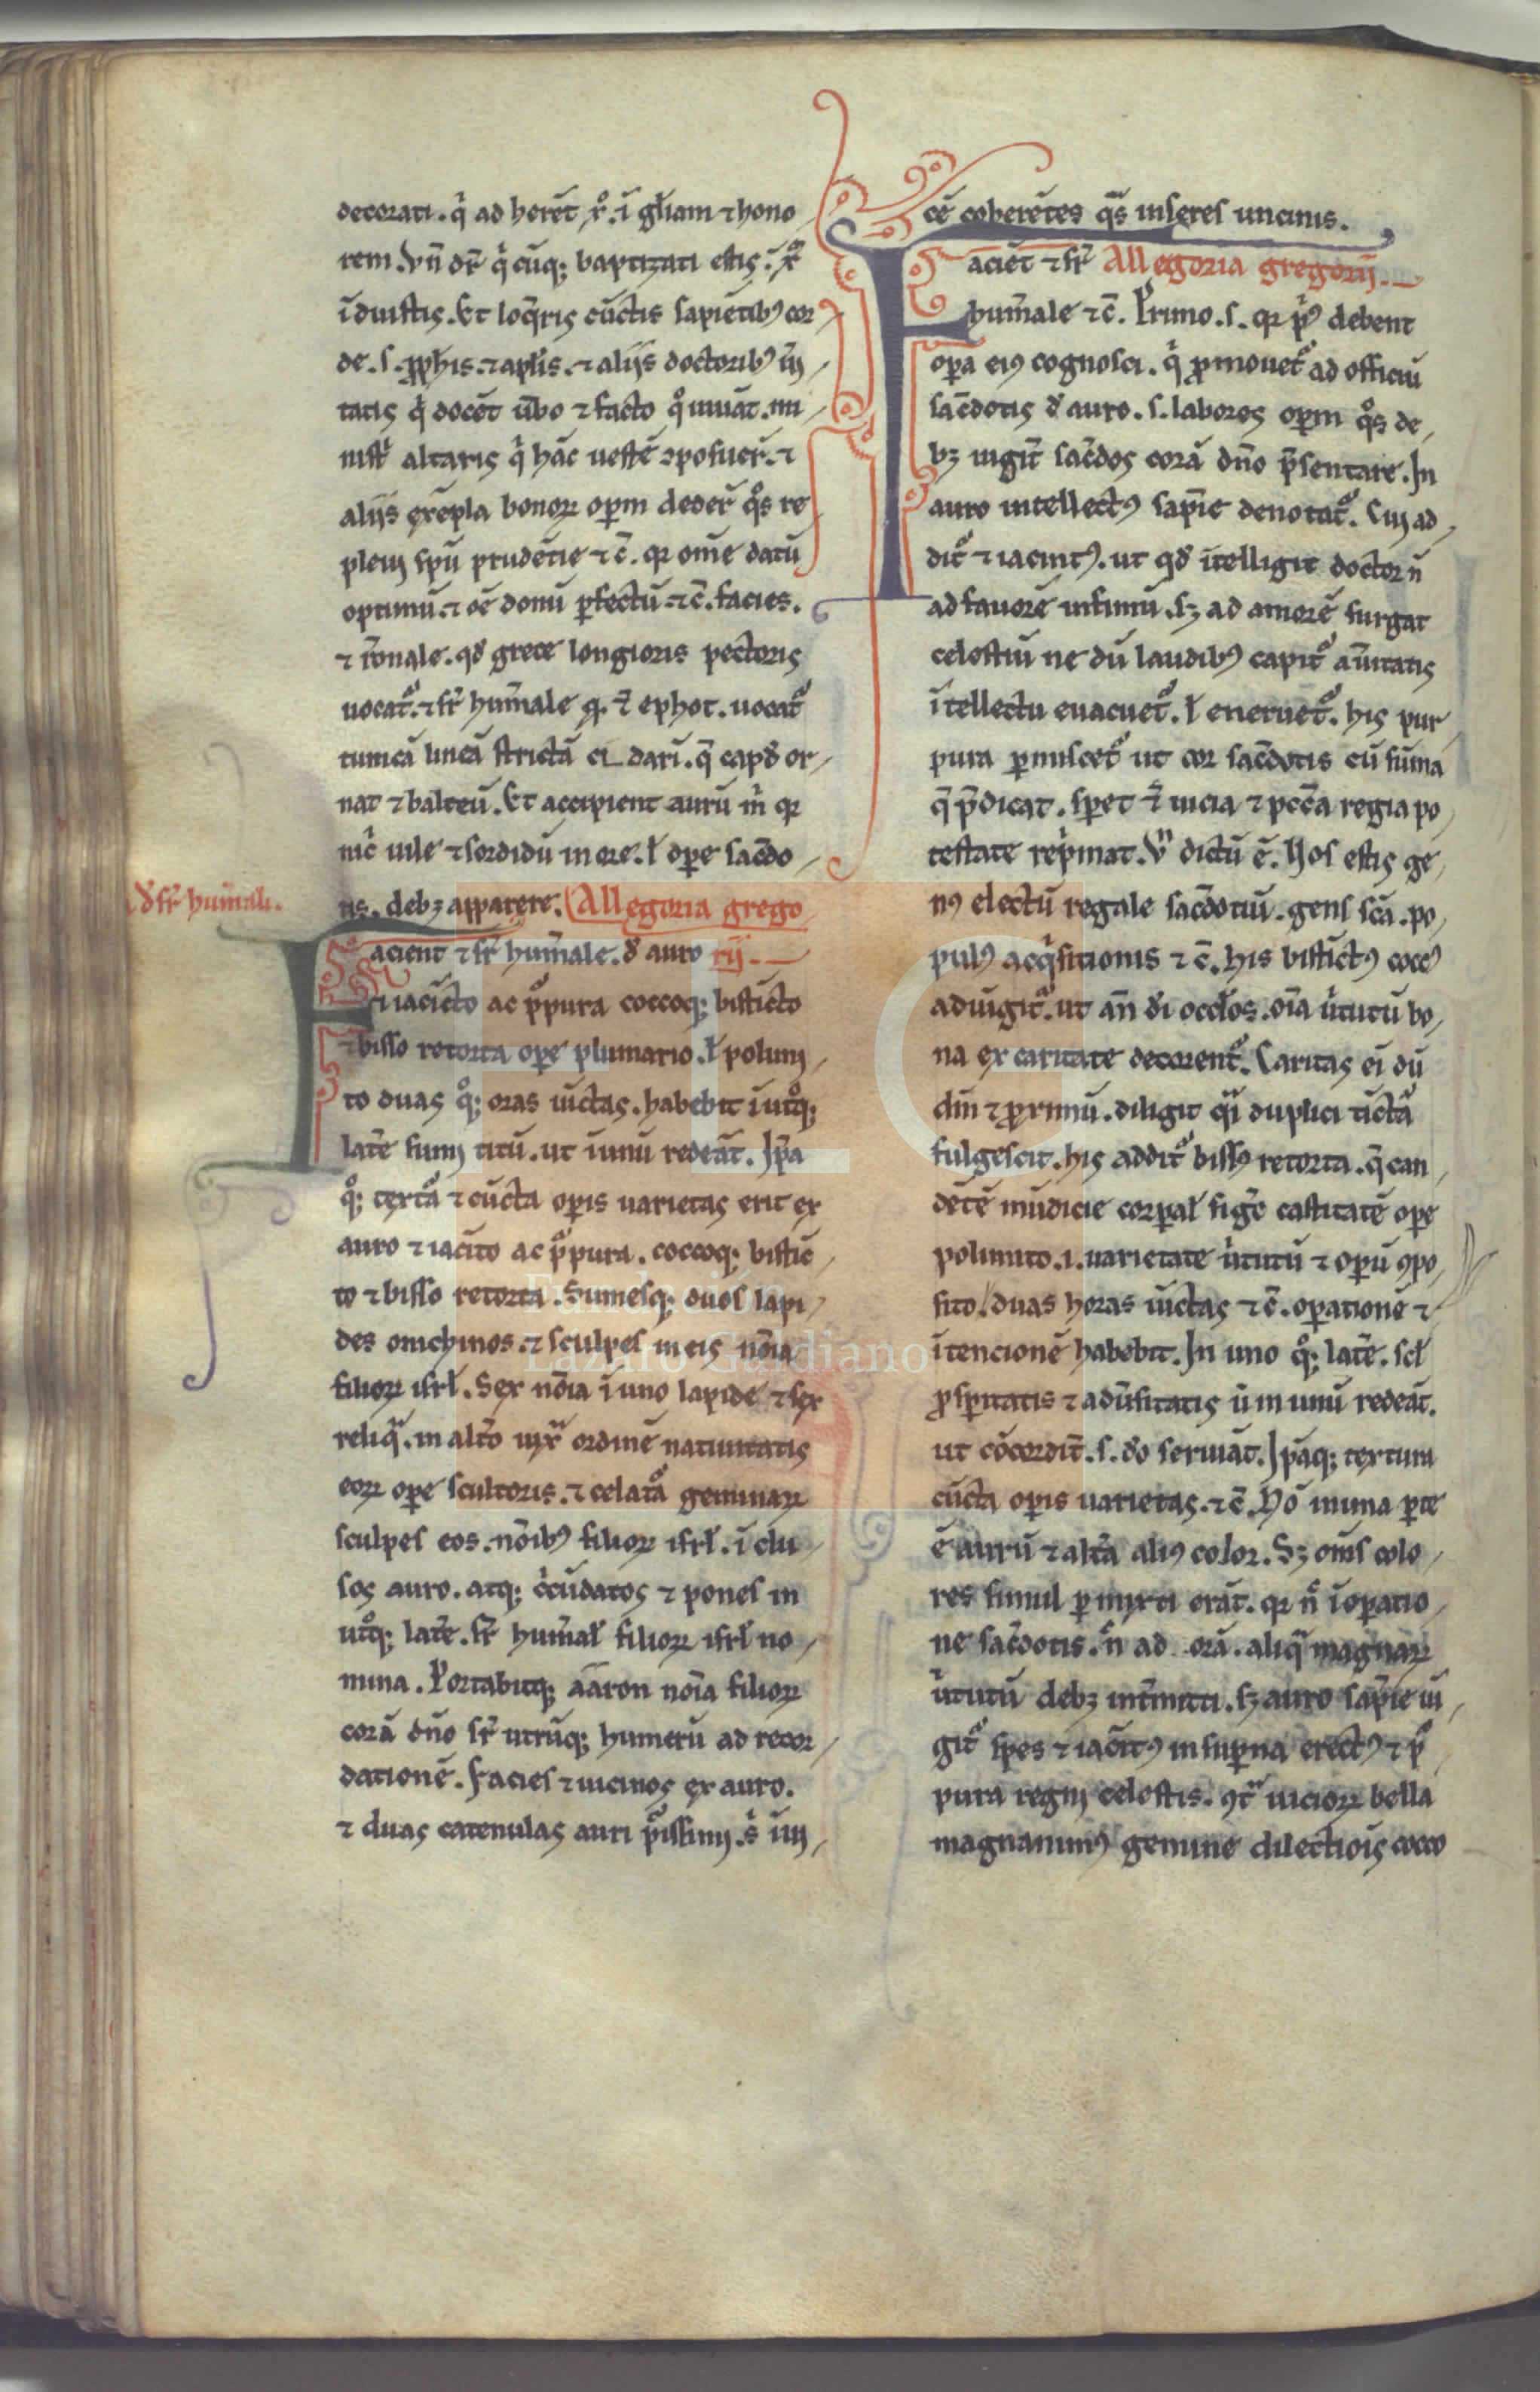 decorati. q̓ ad herēt x̊. ī gl̓iam ⁊ hono
rem. Vn̄ dr̄ q̓ cūq; baptizati estis. ī x̊
īduistis. Et loq̄ris cūctis sapiētib⁹ cor
de. s. ꝓph̓is. ⁊ apl̓is. ⁊ aliis doctorib⁹
tatis q̓ docēt ūbo ⁊ facto q̊ uiuāt. mi
nistr̓ altaris q̓ hāc uestē ↄposuer̄. ⁊
aliis exēpla bonoꝝ oꝑm deder̄ q̊s re
pleui sp̄u prudētie ⁊ c̄. qꝛ om̄e datū
optimū. ⁊ oē donū ꝑfectū. ⁊ c̄. facies.
⁊ r̄onale. qd̓ grece longioris pectoris
uocat᷑. ⁊ sr̄ hum̄ale ephot. uocat᷑
tunicā lineā strictā dari. q̄ capd̓ or
nat ⁊ balteū. Et accipient aurū m̄ qꝛ
nic̓ uile ⁊ sordidū in ore. ł oꝑe sac̄do
tis. debꝫ apparere. Allegoria grego
d̓ sr̄ hum̄ali.
Facient ⁊ sr̄ hum̄ale. d̓ auro rii.
⁊ iacīcto ac p̊pura coccoq; bistīcto
⁊ bisso retorta oꝑe plumario. ł polimi
to duas q̊; oras iūctas. habebit ī utq̊;
lat̄e sum̄ titū. ut ī unū redeāt. Ip̄a
q̊; textᷓa ⁊ cūcta oꝑis uarietas erit ex
auro ⁊ iacīto ac p̊pura. coccoq; bistīc
to ⁊ bisso retorta. Sumesq; duos lapi
des onichinos. ⁊ sculpes in eis nōia
filioꝝ isrl̓. Sex nōia ī uno lapide ⁊ sex
reliqᷓ. in alt̄o iuxᷓ ordinē natiuitatis
eoꝝ oꝑe scultoris. ⁊ celatᷓa geminaꝝ
sculpes eos. nōib⁹ filioꝝ isrl̓. ī clu
sos auro. atq; c̓cūdatos ⁊ pones in
utq̊; lat̄e. sr̄ hum̄al̓ filioꝝ isrl̓ no
mina. Portabitq; āāron nōia filioꝝ
corā dn̄o sr̄ utrūq; humerū ad recor
dationē. Facies ⁊ uncinos ex auro.
⁊ duas catenulas auri p̊issimi. s̓
cē coherētes qᷓs inseres uncinis.
Faciēt ⁊ sr̄ Allegoria gregorii.
hum̄ale ⁊ c̄. Primo. s. qꝛ pⁱ⁹ debent
oꝑa ei⁹ cognosci. q̓ ꝓmouet᷑ ad officiū
sac̄dotis d̓ auro. s. labores oꝑm q̊s de
bꝫ iugit̄ sac̄dos corā dn̄o p̄sentare. In
auro intellect⁹ sap̄ie denotat᷑. Cui ad
dit᷑ ⁊ iacint⁹. ut qd̓ ītelligit doctor n̄
ad fauorē infimū. sꝫ ad amorē surgat
celestiū ne dū laudib⁹ capit᷑ aūitatis
ītellectu euacuet᷑. ł eneruet᷑. his pur
pura ꝑmiscet᷑ ut cor sac̄dotis cū sūma
q̄ p̄dicat. sꝑet ⁊̄ uicia ⁊ pccā regia po
testate rep̓mat. Vn̄ dictū ē. Vos estis ge
n⁹ electū regale sac̄dotiū. gens sc̄a. po
pul⁹ acq̓sitionis ⁊ c̄. his bistīct⁹ cocc⁹
adiūgit᷑. ut an̄ d̓i occl̓os. oīa ūtutū bo
na ex caritate decorent᷑. Caritas ei dū
dm̄ ⁊ ꝓximū. diligit qᷓi duplici tīctᷓa
fulgescit. his addit᷑ biss⁹ retorta. q̄ can
dētē mūdicie corꝑal̓ fig̊e castitatē oꝑe
polimito. i. uarietate ūtutū ⁊ oꝑū ꝯpo
sito. duas horas iūctas ⁊ c̄. oꝑationē ⁊
ītencionē habebit. In uno q̊; lat̄e. scl̓
ꝓsꝑitatis ⁊ adūsitatis ū in unū redeāt.
ut cōcordit̄. s. d̓o seruiāt. Ip̄aq; textura
cūcta oꝑis uarietas. ⁊ c̄. Nō in una ꝑte
ē aurū ⁊ alt̄a ali⁹ color. Sꝫ om̄s colo
res simul ꝑ mixti erāt. qꝛ n̄ ī oꝑatio
ne sac̄dotis. n̄ ad orā. aliqᷓ magnaꝝ
ūtutū debꝫ int̄mitti. sꝫ auro sap̄ie iū
git᷑ spes ⁊ iacīt⁹ in suꝑna erect⁹ ⁊ p̊
pura regni celestis. ꝯtᷓ uicioꝝ bella
magnanim⁹ gemine dilectiōis cocco